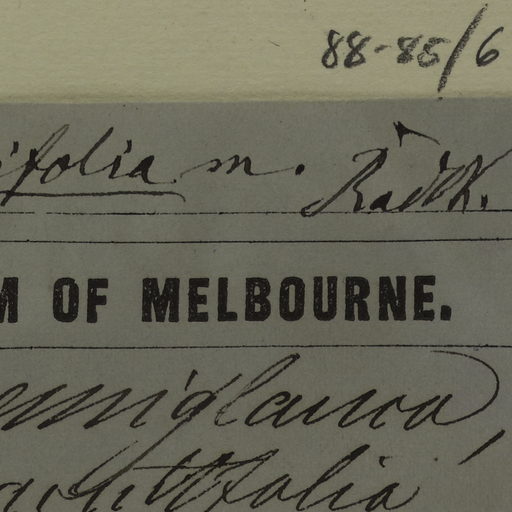 88-85/6
ifolia m. Radlk.
M OF MELBOURNE.
emiglauca,
acutifolia